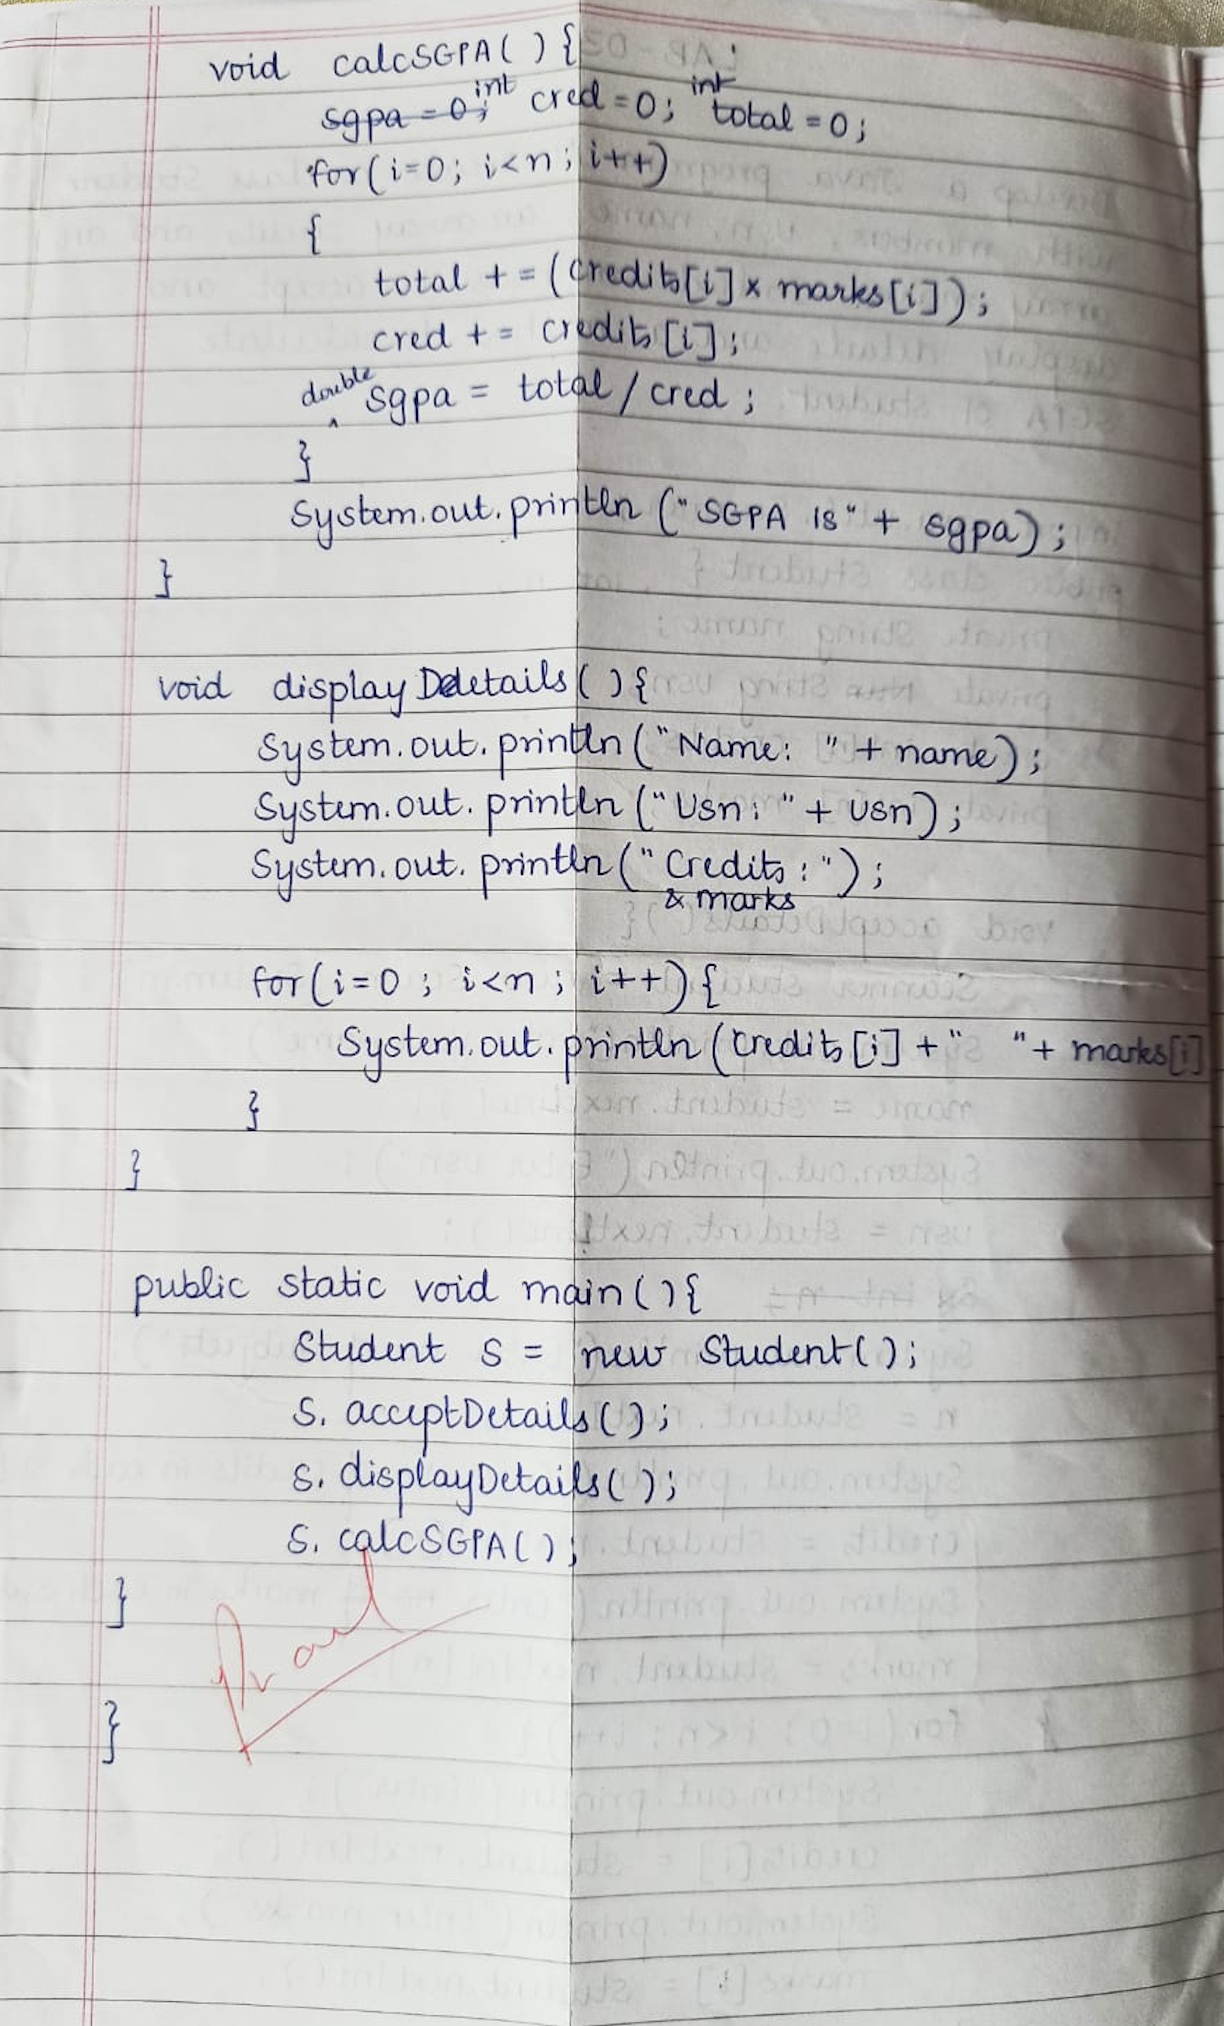 void calcSGPA( ) {
sgpa = 0; int cred = 0; int total = 0;
for(i=0; i<n; i++)
{
total + = (credits[i] x marks[i]);
cred + = credits[i];
double sgpa = total / cred ;
}
System.out.println ("SGPA is" + sgpa);
}
void displayDetails( ) {
System.out.println("Name: " + name);
System.out.println("Usn: " + usn);
System.out.println("Credits & marks : ");
for(i=0 ; i<n ; i++){
System.out.println(credits[i] + "  " + marks[i]
}
}
public static void main( ){
Student S = new Student( );
S. acceptDetails( );
S. displayDetails( );
S. calcSGPA( );
}
}